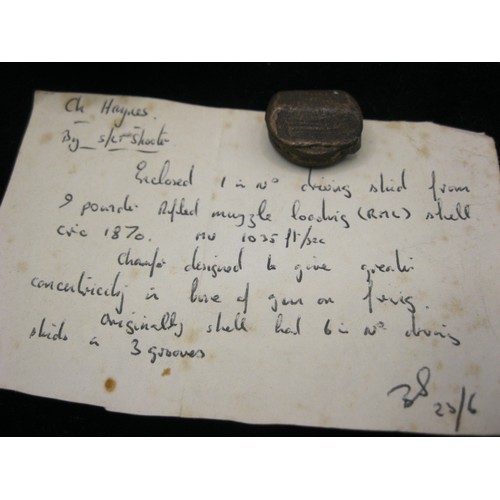 Ch Haynes.
By
Enclosed 1 in Nº driving stud from
9 pounder Rifled muzzle loading (RML) shell
circ 1870. MV 1035 ft/sec
Chamfer designed to give greater
concentricity in bore of gun on firing.
Originally shell had 6 in Nº driving
studs in 3 grooves
23/6